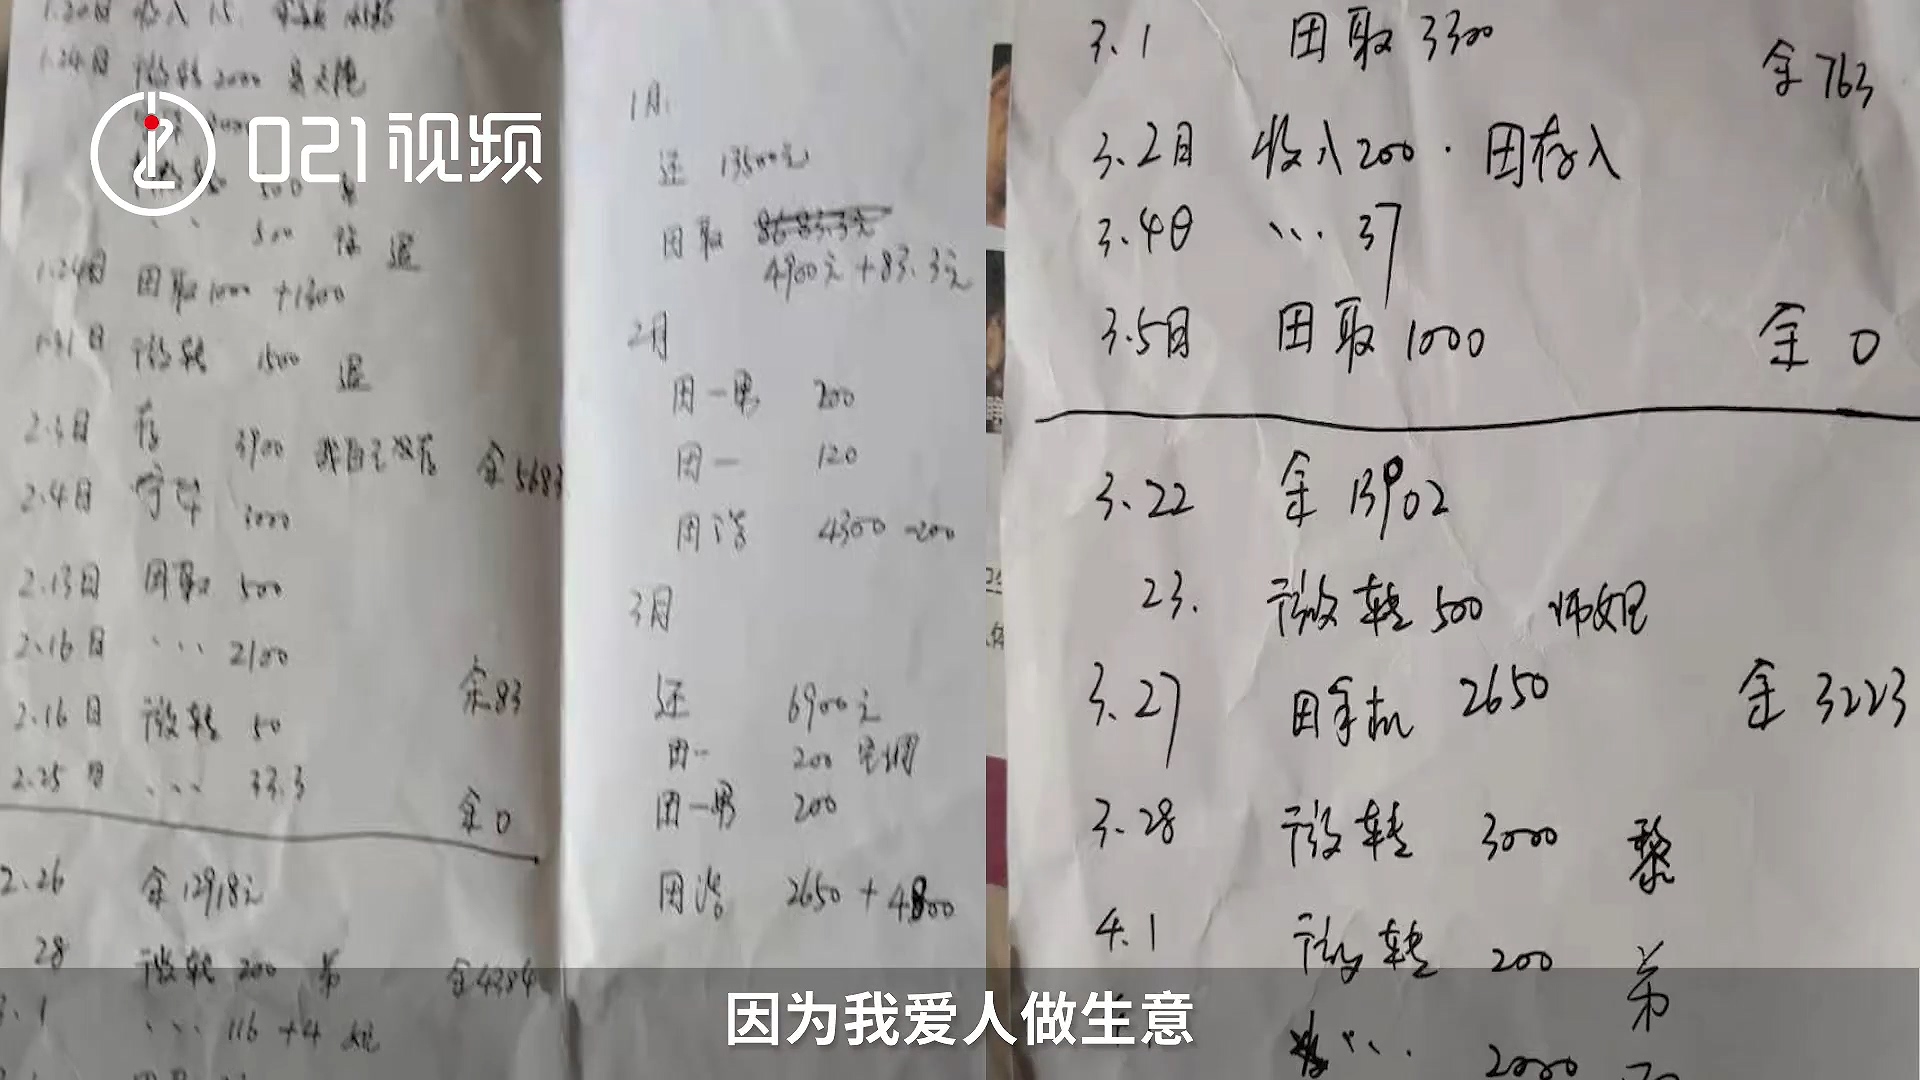 021视频
1.24日 微转2000
500
500 还
1.24日 田取1000 +1300
1.31日 微转 1500 退
2.3日 存 3900 我自己没存 余5683
2.4日 3000
2.13日 田取 500
2.16日 ... 2100 余83
2.16日 微转 50
2.25日 ... 33.3 余0
2.26 余12918元
28 微转 200 弟 余4384
3.1 ... 116 +4 姐
1月
还 13500元
田取 8683.3元
4900元+83.3元
2月
田一男 200
田一 120
田浩 4300 -200
3月
还 6900元
田一 200
田一男 200
田浩 2650 + 4800
3.1 田取 3300 余763
3.2日 收入200 . 田存入
3.4日 ... 37
3.5日 田取 1000 余 0
3.22 余 13902
23. 微转 500 师姐
3.27 田手机 2650 余 3223
3.28 微转 3000 黎
4.1 微转 200 弟
... 2000
因为我爱人做生意